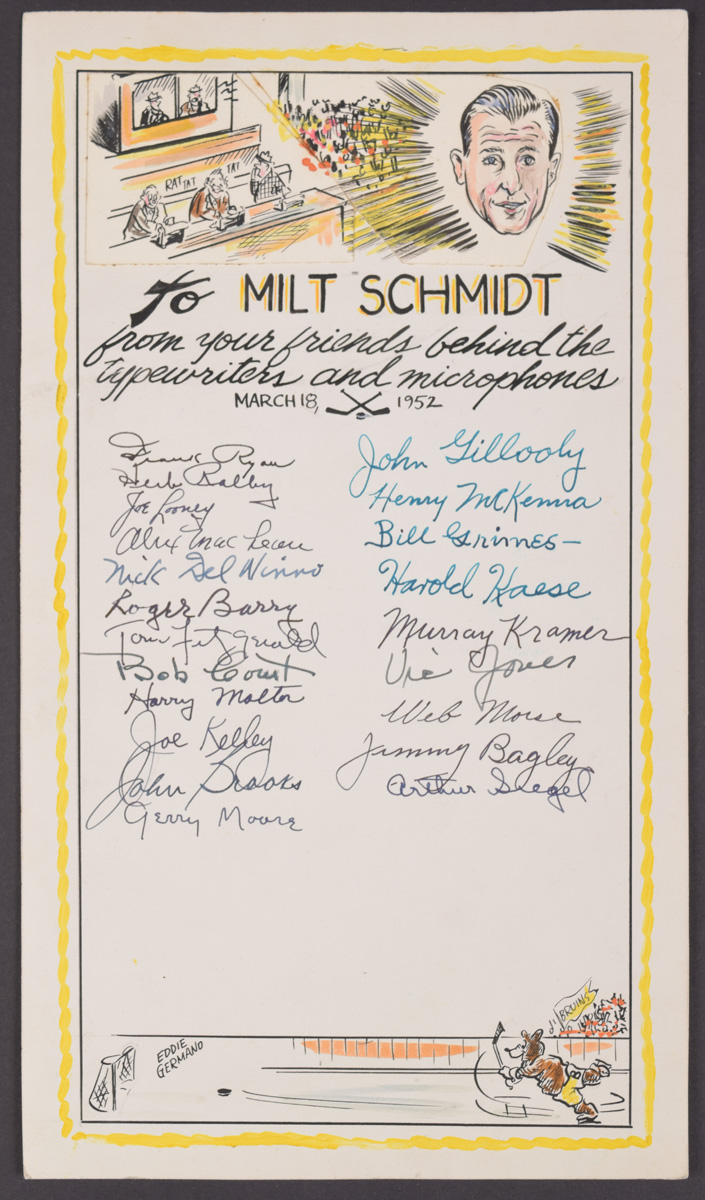 RAT TAT TAT
To MILT SCHMIDT
from your friends behind the
typewriters and microphones
MARCH 18, 1952
Frank Ryan
Herb Ralby
Joe Looney
Alex MacLean
Nick Del Ninno
Roger Barry
Tom Fitzgerald
Bob Coint
Harry Molter
Joe Kelley
John Brooks
Gerry Moore
John Gillooly
Henry McKenna
Bill Grimes
Harold Kaese
Murray Kramer
Vic Jones
Web Morse
Jimmy Bagley
Arthur Siegel
BRUINS
EDDIE
GERMANO